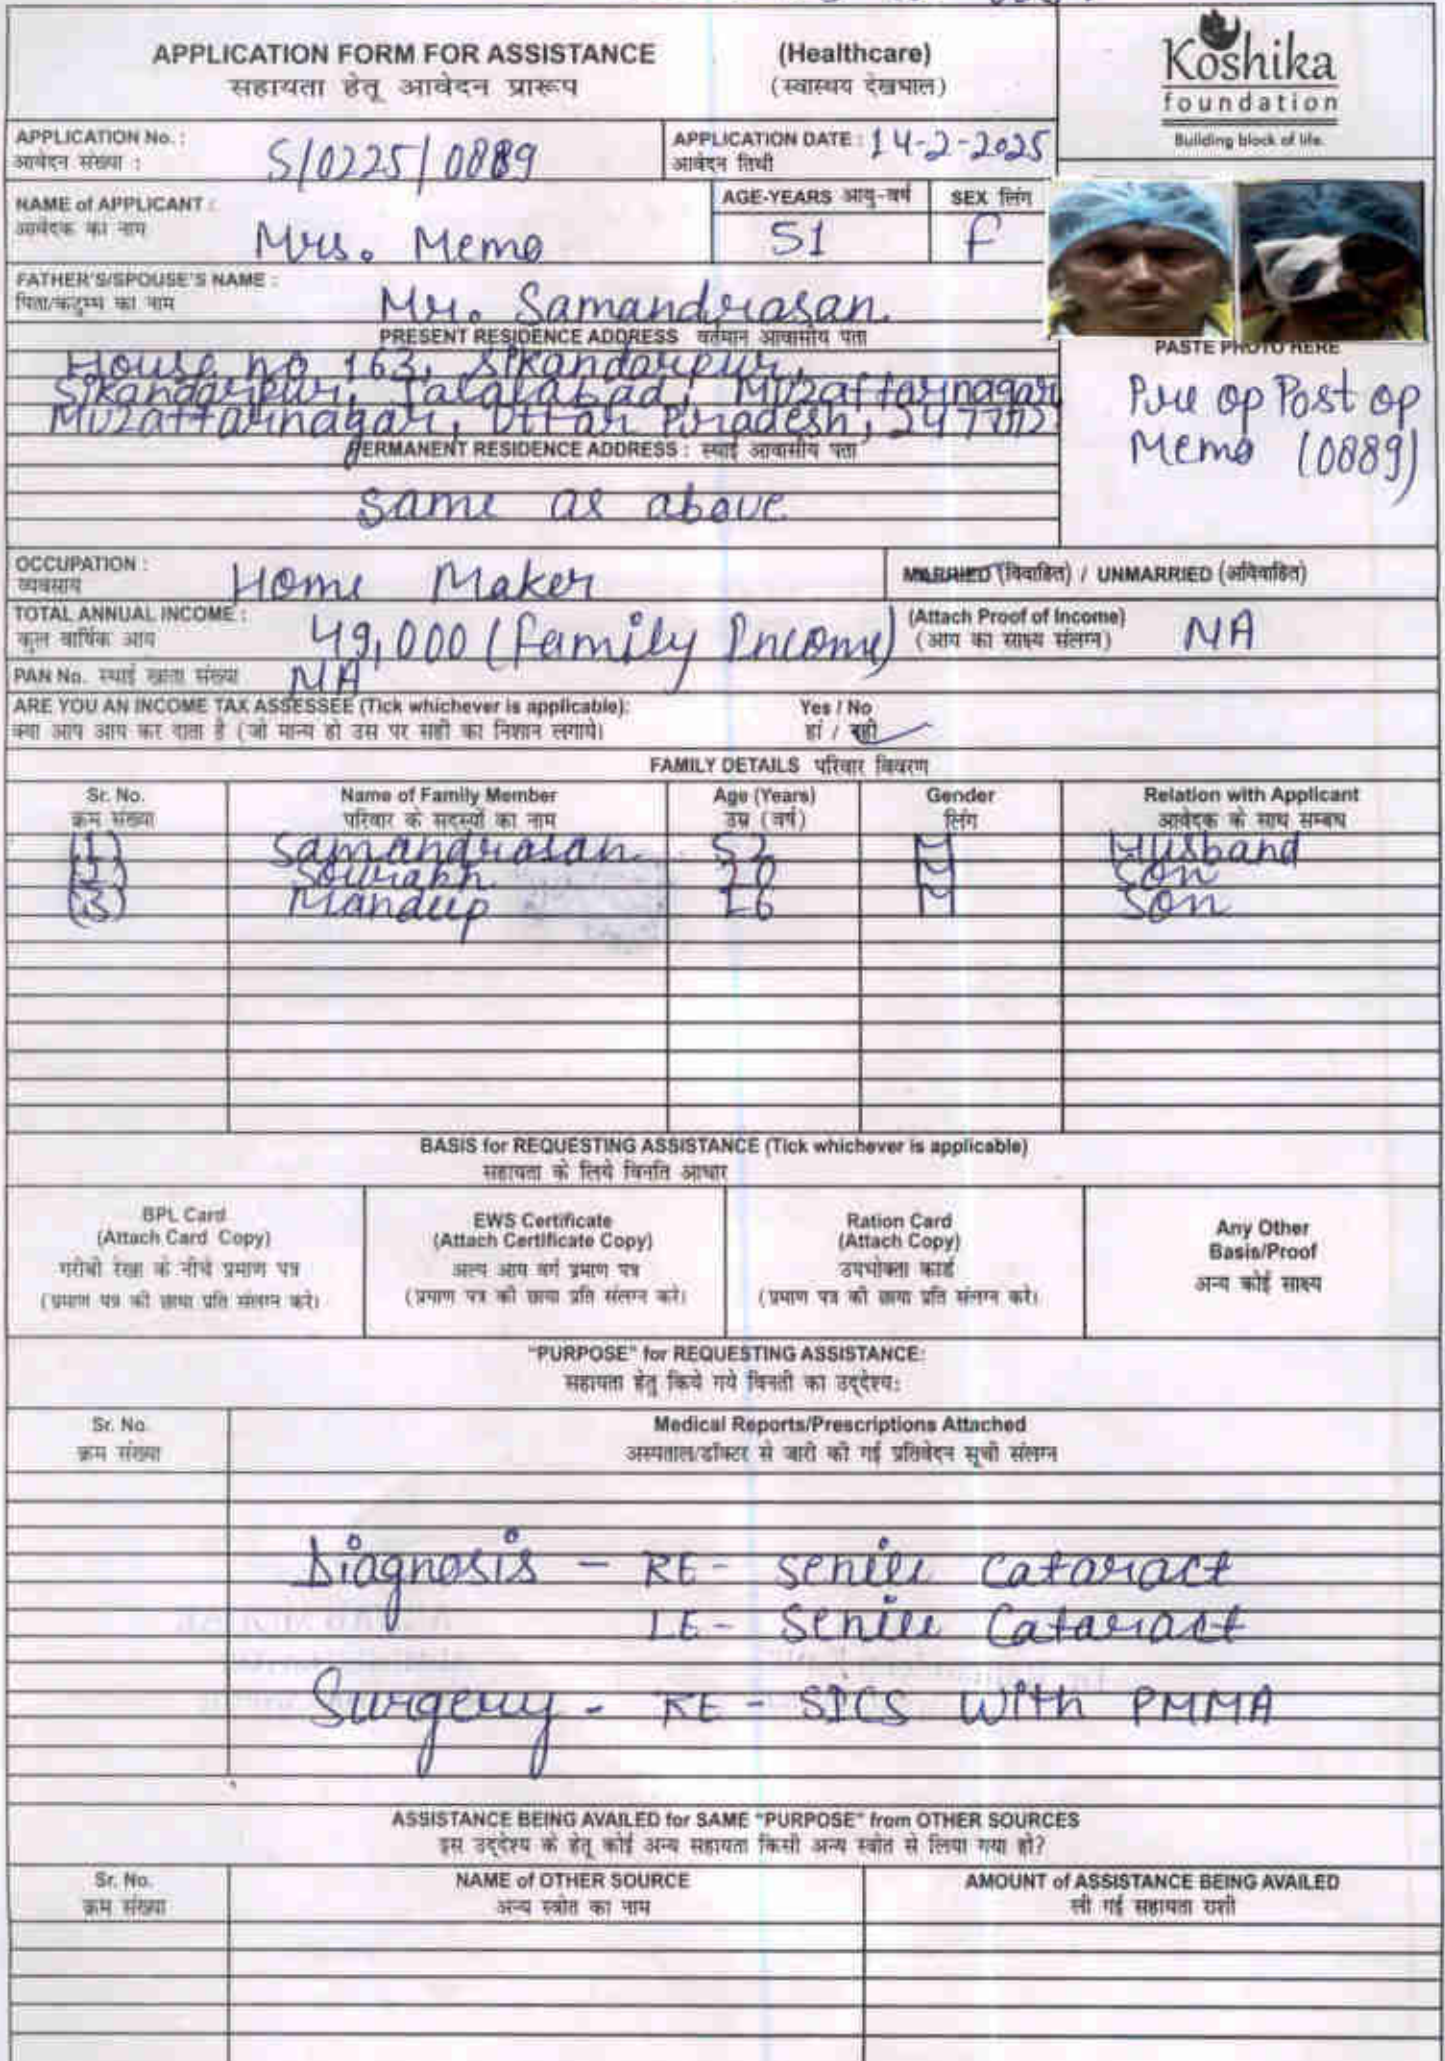 APPLICATION FORM FOR ASSISTANCE
सहायता हेतू आवेदन प्रारूप
(Healthcare)
(स्वास्थय देखभाल)
Koshika
foundation
Building block of life.
APPLICATION No. :
आवेदन संख्या :
S/0225/0889
APPLICATION DATE : 14-2-2025
आवेदन तिथी
NAME of APPLICANT :
आवेदक का नाम
Mrs. Memo
AGE-YEARS आयु-वर्ष
51
SEX लिंग
F
FATHER'S/SPOUSE'S NAME :
पिता/कटुम्भ का नाम
Mr. Samandrasan.
PRESENT RESIDENCE ADDRESS वर्तमान आवासीय पता
House no 163, Sikandarpur,
Sikandarpur, Jalalabad, Muzaffarnagar
Muzaffarnagar, Uttar Pradesh, 247772
PASTE PHOTO HERE
Pre op Post op
Memo (0889)
PERMANENT RESIDENCE ADDRESS : स्थाई आवासीय पता
same as above
OCCUPATION :
व्यवसाय
Home Maker
MARRIED (विवाहित) / UNMARRIED (अविवाहित)
TOTAL ANNUAL INCOME :
कुल वार्षिक आय
49,000 (Family Income)
(Attach Proof of Income)
(आय का साक्ष्य संलग्न)
NA
PAN No. स्थाई खाता संख्या NA
ARE YOU AN INCOME TAX ASSESSEE (Tick whichever is applicable):
क्या आप आय कर दाता है (जो मान्य हो उस पर सही का निशान लगाये)
Yes / No
हां / नही
FAMILY DETAILS परिवार विवरण
Sr. No. Name of Family Member Age (Years) Gender Relation with Applicant
क्रम संख्या परिवार के सदस्यों का नाम उम्र (वर्ष) लिंग आवेदक के साथ सम्बध
(1) Samandrasan. 52 M Husband
(2) Sourabh. 20 M Son
(3) Mandeep 26 M Son
BASIS for REQUESTING ASSISTANCE (Tick whichever is applicable)
सहायता के लिये विनति आधार
BPL Card
(Attach Card Copy)
गरीबी रेखा के नीचे प्रमाण पत्र
(प्रमाण पत्र की छाया प्रति संलग्न करे)
EWS Certificate
(Attach Certificate Copy)
अल्प आय वर्ग प्रमाण पत्र
(प्रमाण पत्र की छाया प्रति संलग्न करे)
Ration Card
(Attach Copy)
उपभोक्ता कार्ड
(प्रमाण पत्र की छाया प्रति संलग्न करे)
Any Other
Basis/Proof
अन्य कोई साक्ष्य
"PURPOSE" for REQUESTING ASSISTANCE:
सहायता हेतु किये गये विनती का उद्देश्य:
Sr. No. Medical Reports/Prescriptions Attached
क्रम संख्या अस्पताल/डॉक्टर से जारी की गई प्रतिवेदन सूची संलग्न
Diagnosis - RE - Senile Cataract
LE - Senile Cataract
Surgery - RE - SICS with PMMA
ASSISTANCE BEING AVAILED for SAME "PURPOSE" from OTHER SOURCES
इस उद्देश्य के हेतू कोई अन्य सहायता किसी अन्य स्त्रोत से लिया गया हो?
Sr. No. NAME of OTHER SOURCE AMOUNT of ASSISTANCE BEING AVAILED
क्रम संख्या अन्य स्त्रोत का नाम ली गई सहायता राशी